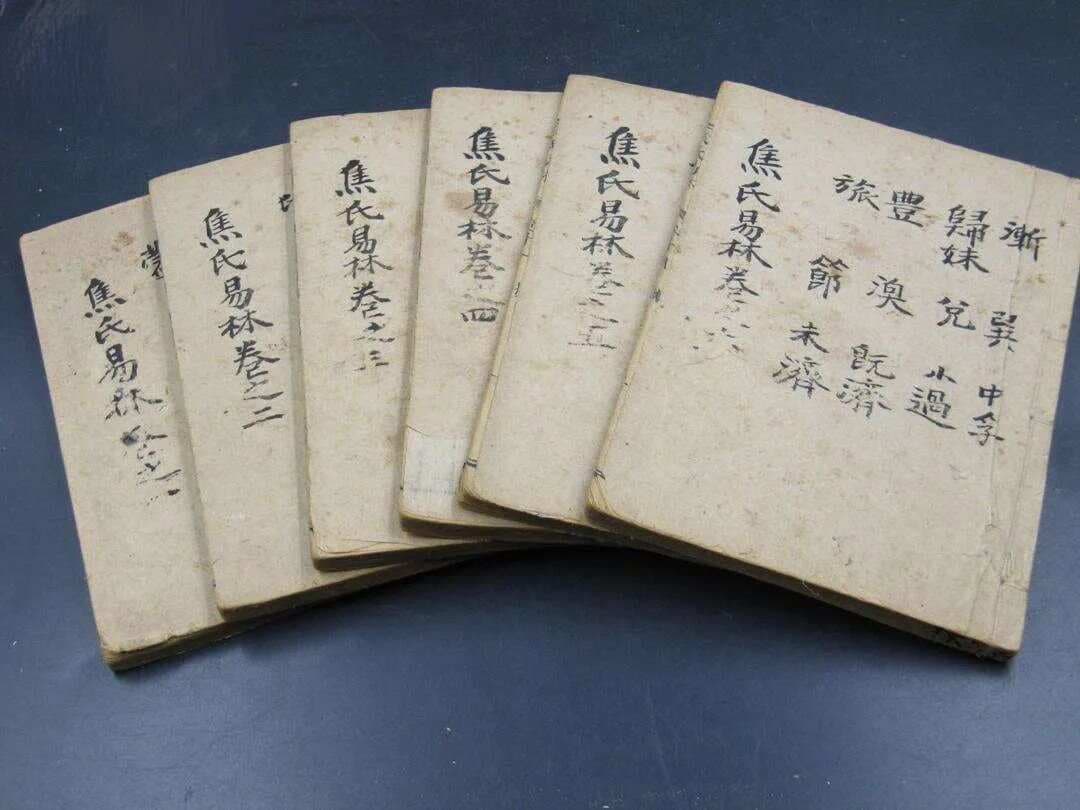 焦氏易林卷之一
焦氏易林卷之二
焦氏易林卷之三
焦氏易林卷之四
焦氏易林卷之五
焦氏易林卷之六
漸 歸妹 豐 旅
巽 兌 渙 節
中孚 小過 既濟 未濟